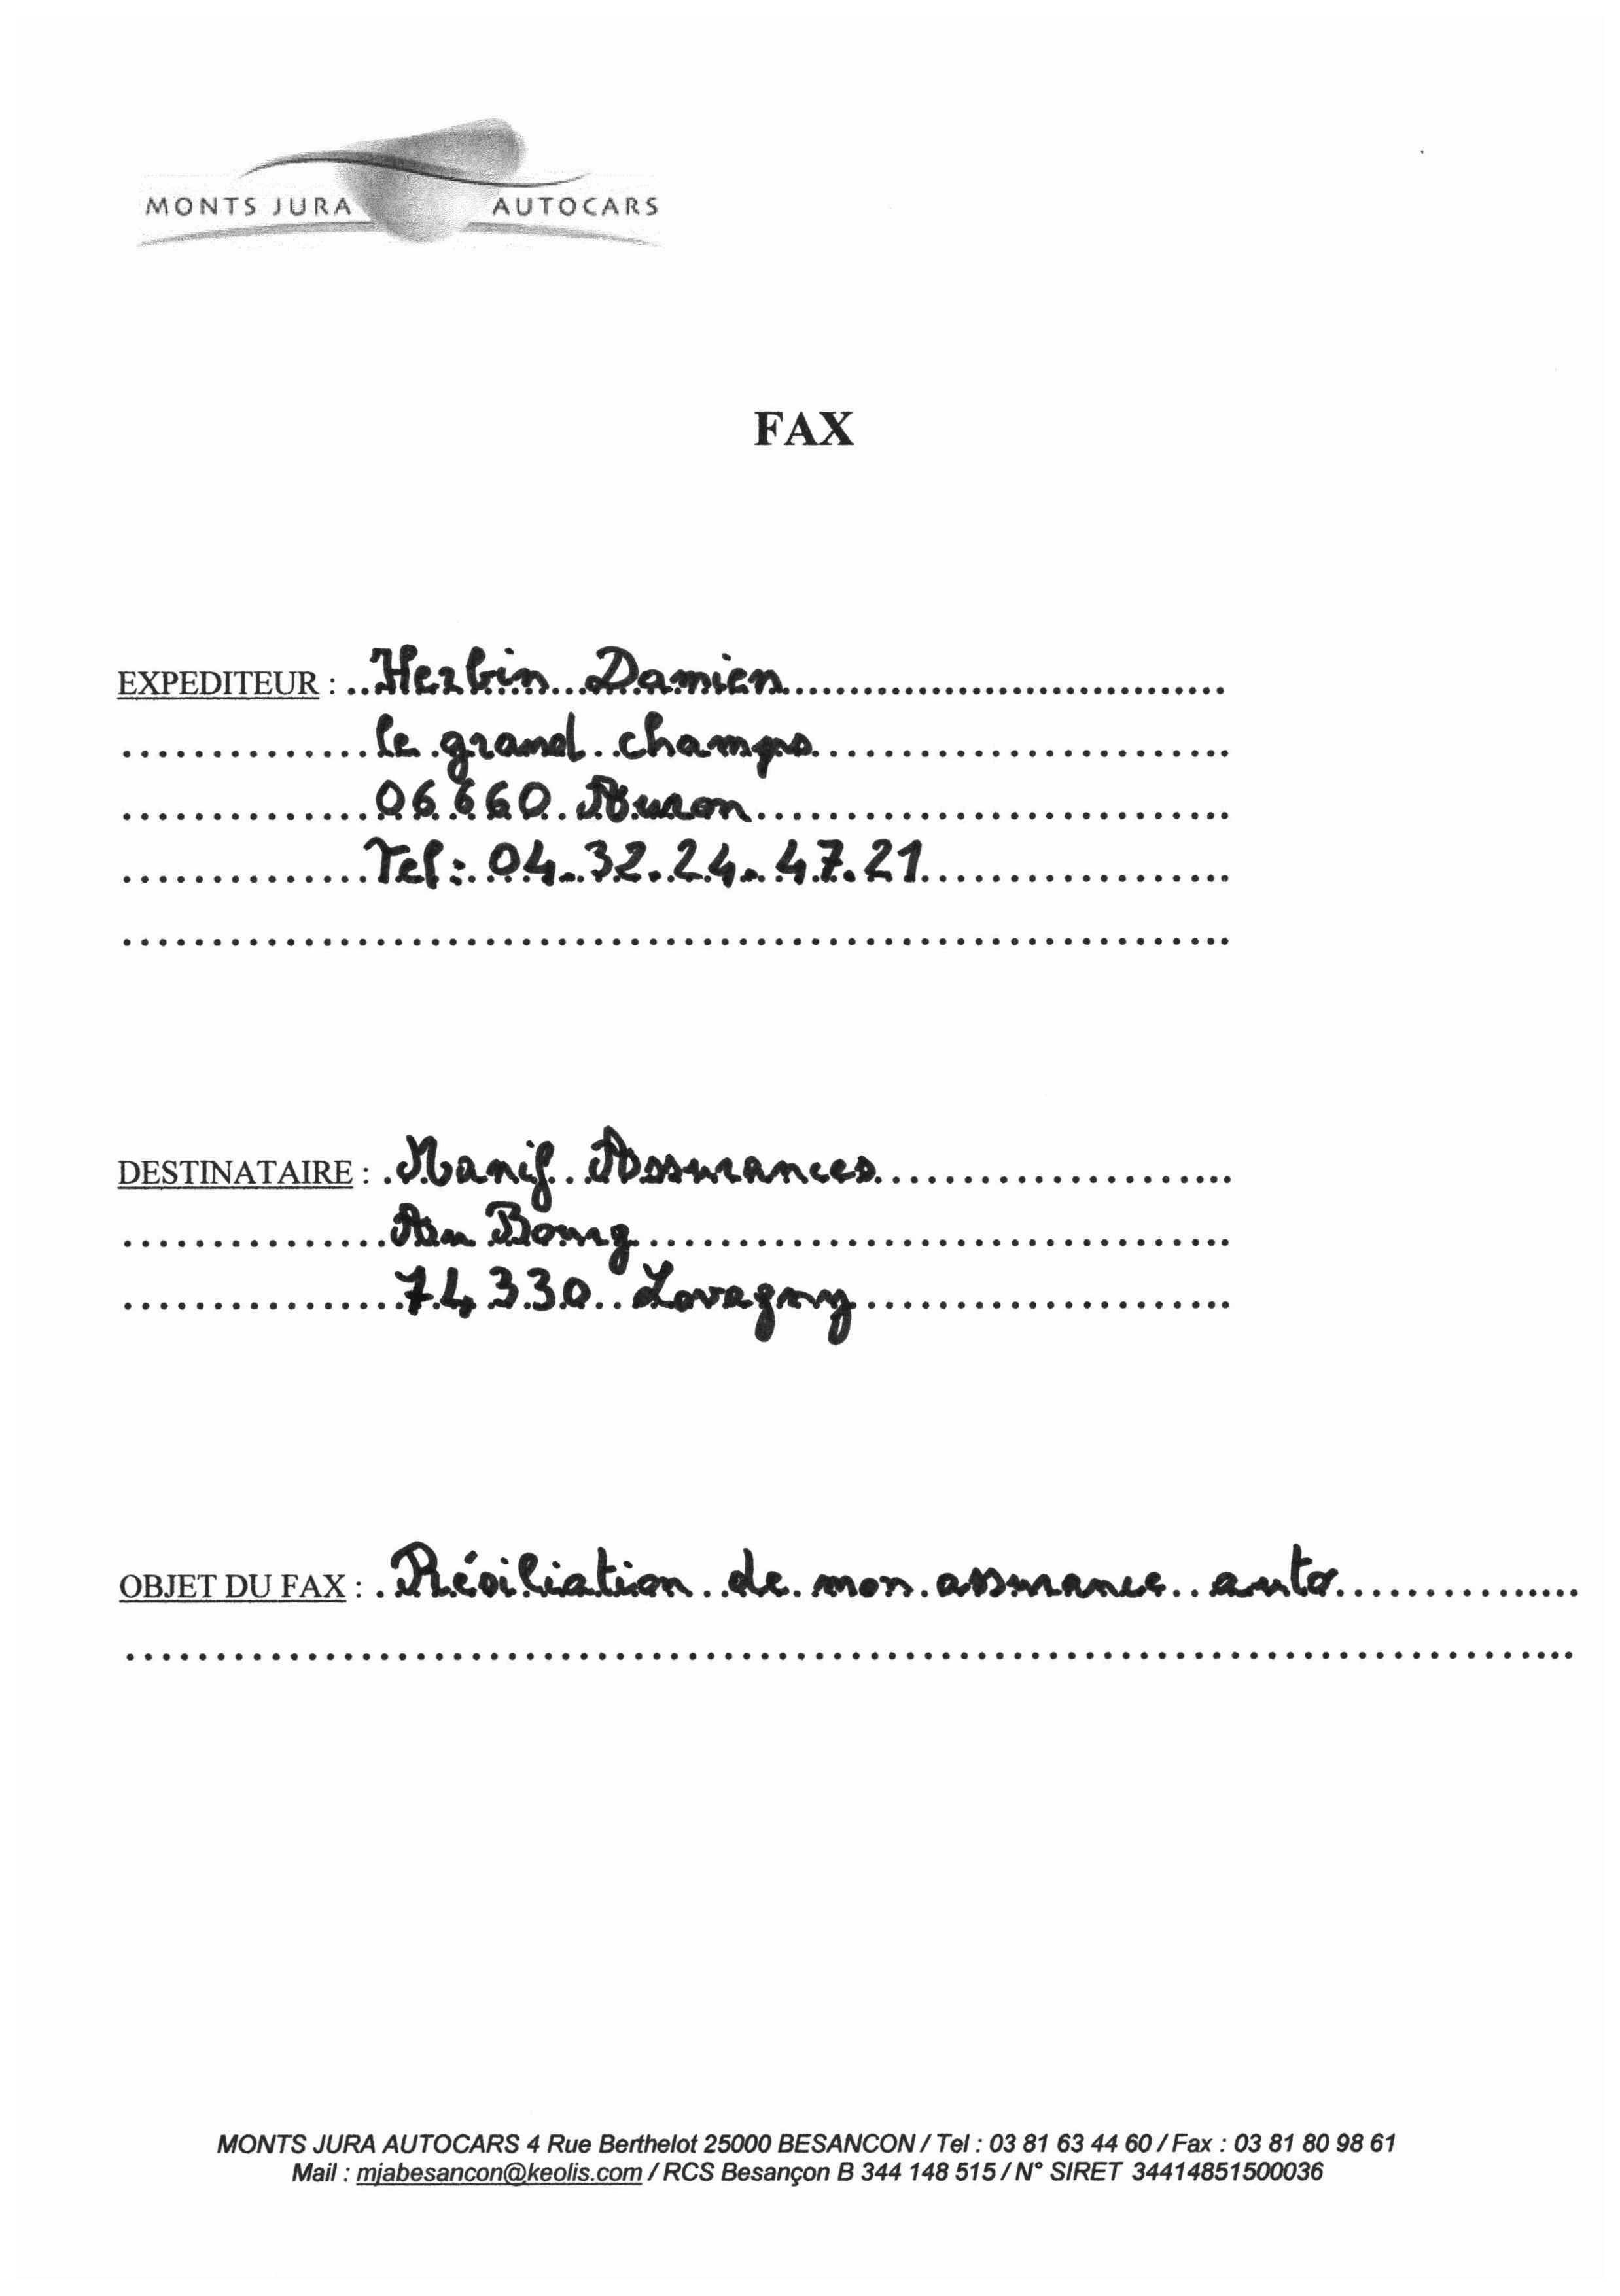 MONTS JURA AUTOCARS
FAX
EXPEDITEUR : Herbin Damien
le grand champs
06660 Auron
Tel : 04.32.24.47.21
DESTINATAIRE : Manif Assurances
Au Bourg
74330 Lovagny
OBJET DU FAX : Résiliation de mon assurance auto
MONTS JURA AUTOCARS 4 Rue Berthelot 25000 BESANCON / Tel : 03 81 63 44 60 / Fax : 03 81 80 98 61
Mail : mjabesancon@keolis.com / RCS Besançon B 344 148 515 / N° SIRET 34414851500036